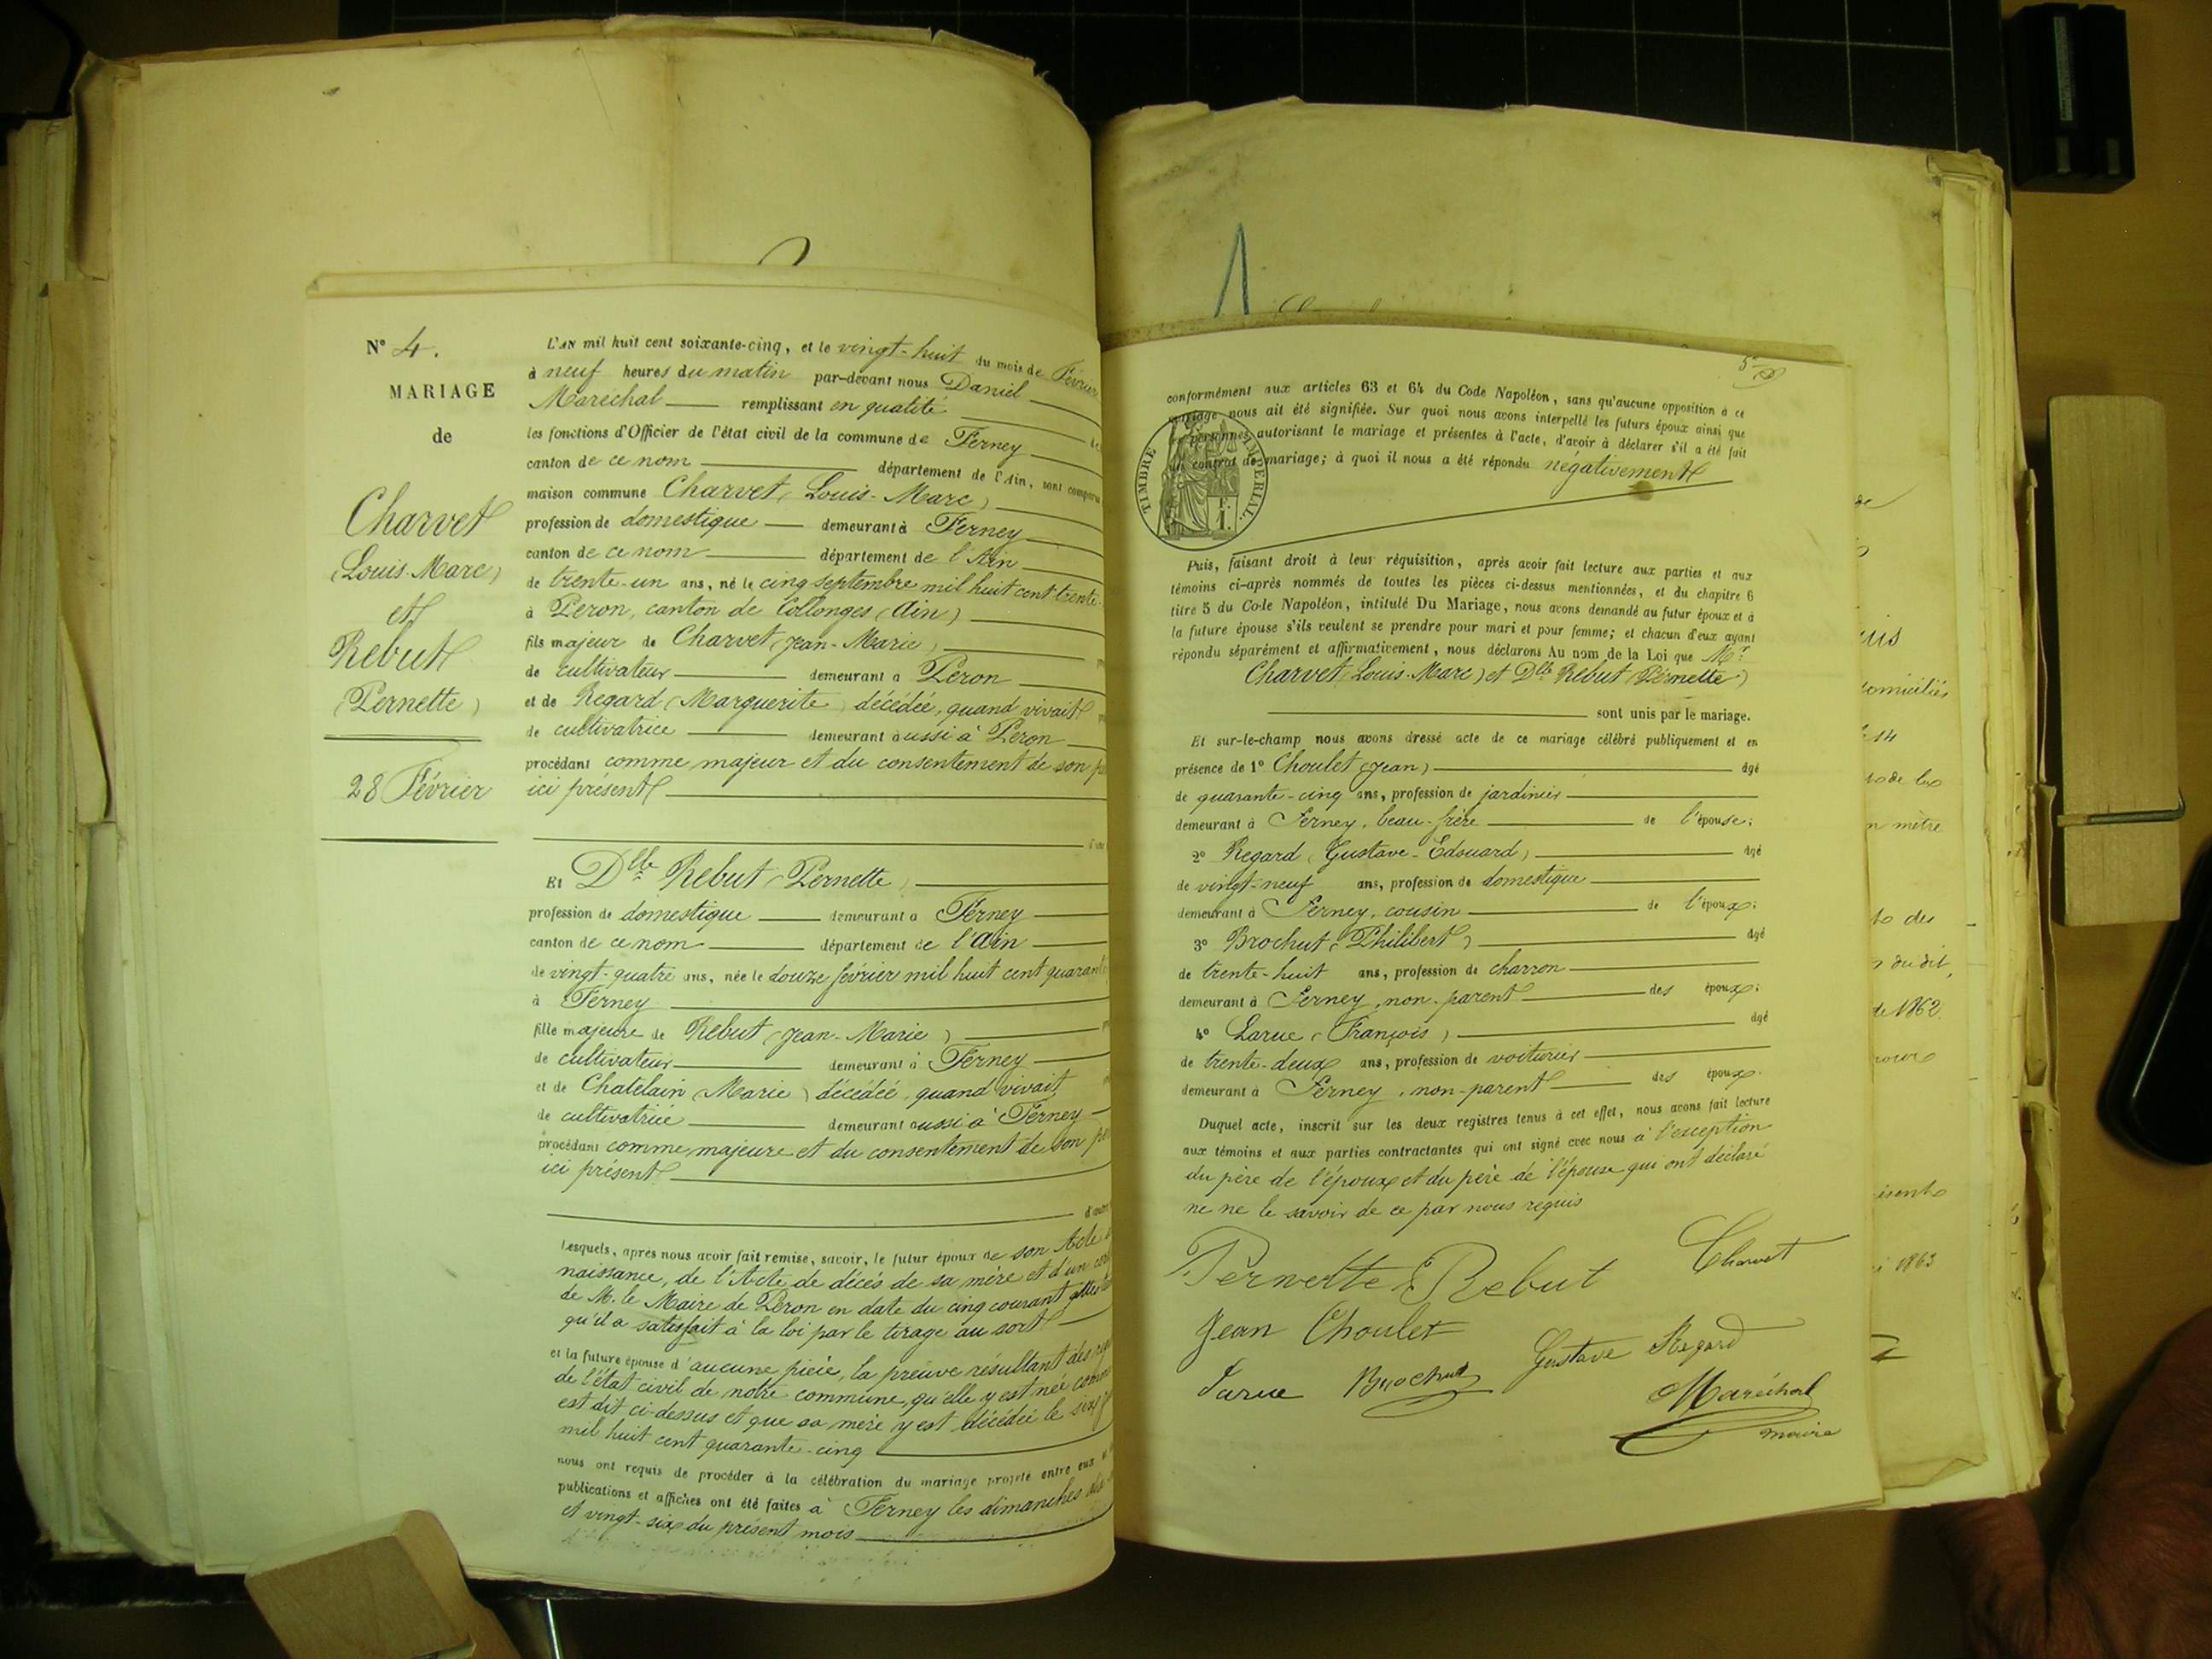 N° 4.
MARIAGE
de
Charvet
(Louis-Marc)
et
Rebut
(Pernette)
28 Février
L'AN mil huit cent soixante-cinq, et le vingt-huit du mois de Février
à neuf heures du matin par-devant nous Daniel
Maréchal remplissant en qualité de
les fonctions d'Officier de l'état civil de la commune de Ferney
canton de ce nom département de l'Ain, sont comparus
maison commune Charvet (Louis-Marc)
profession de domestique demeurant à Ferney
canton de ce nom département de l'Ain
de trente-un ans, né le cinq septembre mil huit cent trente-
à Peron, canton de Collonges (Ain)
fils majeur de Charvet (Jean-Marie)
de cultivateur demeurant à Péron
et de Regard (Marguerite) décédée, quand vivait
de cultivatrice demeurant aussi à Péron
procédant comme majeur et du consentement de son
ici présent
Et Dlle Rebut (Pernette)
profession de domestique demeurant à Ferney
canton de ce nom département de l'Ain
de vingt-quatre ans, née le douze février mil huit cent quarante
à Ferney
fille majeure de Rebut (Jean-Marie)
de cultivateur demeurant à Ferney
et de Chatelain (Marie) décédée, quand vivait
de cultivatrice demeurant aussi à Ferney
procédant comme majeure et du consentement de son
ici présent
Lesquels, après nous avoir fait remise, savoir, le futur époux de son Acte
naissance, de l'Acte de décés de sa mère et d'un
de M. le Maire de Péron en date du cinq courant
qu'il a satisfait à la loi par le tirage au sort
et la future épouse d'aucune pièce, la preuve résultant des
de l'état civil de notre commune, qu'elle y est née comme
est dit ci-dessus et que sa mère y est décédée le six
mil huit cent quarante-cinq
nous ont requis de procéder à la célébration du mariage projeté entre eux
publications et affiches ont été faites à Ferney les dimanches
et vingt-six du présent mois
1
conformément aux articles 63 et 64 du Code Napoléon, sans qu'aucune opposition à ce
mariage nous ait été signifiée. Sur quoi nous avons interpellé les futurs époux ainsi que
les personnes autorisant le mariage et présentes à l'acte, d'avoir à déclarer s'il a été fait
un contrat de mariage; à quoi il nous a été répondu négativement
TIMBRE IMPERIAL.
1 F.
Puis, faisant droit à leur réquisition, après avoir fait lecture aux parties et aux
témoins ci-après nommés de toutes les pièces ci-dessus mentionnées, et du chapitre 6
titre 5 du Code Napoléon, intitulé Du Mariage, nous avons demandé au futur époux et à
la future épouse s'ils veulent se prendre pour mari et pour femme; et chacun d'eux ayant
répondu séparément et affirmativement, nous déclarons Au nom de la Loi que Mr
Charvet (Louis-Marc) et Dlle Rebut (Pernette)
sont unis par le mariage.
Et sur-le-champ nous avons dressé acte de ce mariage célébré publiquement et en
présence de 1° Choulet (Jean) âgé
de quarante-cinq ans, profession de jardinier
demeurant à Ferney, beau-frère de l'épouse;
2° Regard (Gustave-Edouard) âgé
de vingt-neuf ans, profession de domestique
demeurant à Ferney, cousin de l'époux;
3° Brochut (Philibert) âgé
de trente-huit ans, profession de charron
demeurant à Ferney, non-parent des époux;
4° Larue (François) âgé
de trente-deux ans, profession de voiturier
demeurant à Ferney, non-parent des époux.
Duquel acte, inscrit sur les deux registres tenus à cet effet, nous avons fait lecture
aux témoins et aux parties contractantes qui ont signé avec nous à l'exception
du père de l'époux et du père de l'épouse qui ont déclaré
ne ne le savoir de ce par nous requis
Pernette Rebut Charvet
Jean Choulet Gustave Regard
Larue Brochut Maréchal
maire
domiciliés
n mètre
de 1862
1863